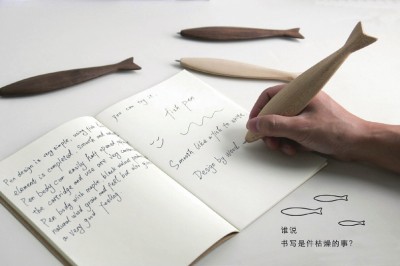 Pen design is very simple, using
elements is completed. Smooth and
Pen body can easily feel
the cartridge and use are very
Pen body wish maple, black walnut
natural wood grain and feel but will
a very good feeling
you can try it
fish pen
Smooth like a fish to write
Design by wood
谁说
书写是件枯燥的事?